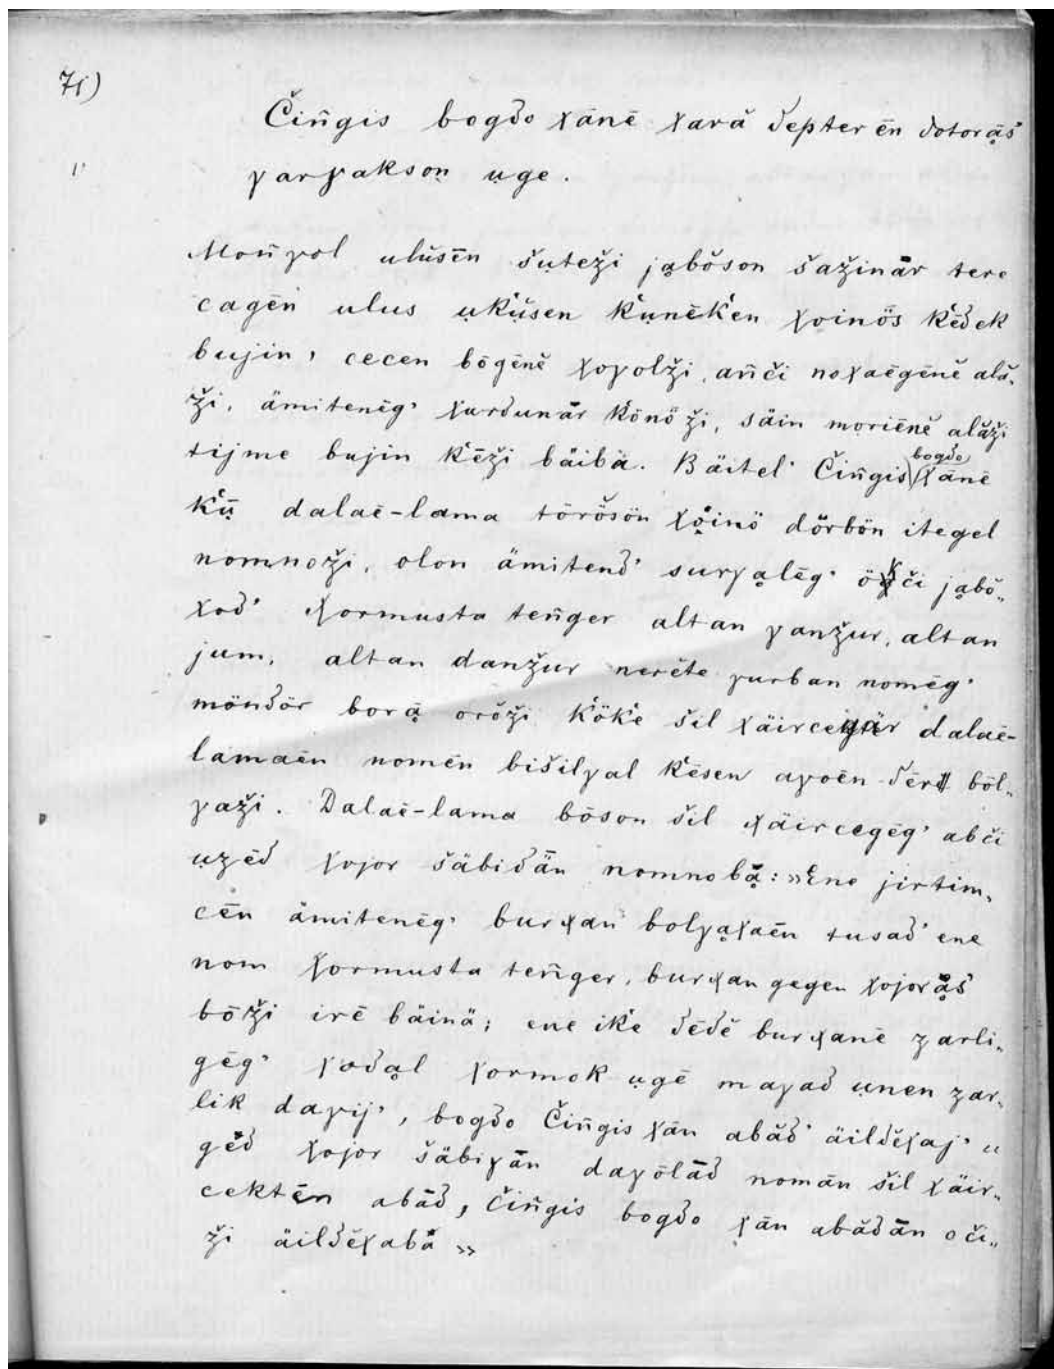 71)
Čiñgis bogδo χānē χarǎ δepter ēn δotorą̄s
1)
γarγakson ųge.
Moñγol ulŭsēn šųteži ją̄bŏson šažinār tere
cagēn ulus ųḱųsen ḱųnēḱen χoinŏ̈s ḱēδek
bujin, cecen bögēnĕ χoγolži, añči noχaēgēnĕ ală-
ži, ämitenēg' χurδunār ḱönö̆ži, säin moriēnĕ alăži
tijme bujin ḱēži bäibä. Bäitel' Čiñgis bogδo χānē
ḱų̄ dalaē-lama töröšön χǫ̈inö dörbön itegel
nomnoži, olon ämitenδ' surγąlēg' ökči ją̄bŏ-
χoδ' χormusta teñger altan γanžur, altan
jum, altan danžur nerēte γurban nomēg'
mönδör borą̄ orŏži ḱöḱe šil χäircegär dalaē-
lamaēn nomēn bišilγal ḱēsen aγoēn δērĕ böl-
γaži. Dalaē-lama bŏson šil χäircegēg' abči
ųzēδ χojor šäbiδān nomnobą̄: »Ene jirtim-
cēn ämitenēg' burχan bolγąχaēn tusaδ' ene
nom χormusta teñger, burχan gegen χojorą̄s
bŏži irē bäinä; ene iḱe δēδĕ burχanē zarli-
gēg' χuδąl χormok ųgē maγaδ ųnen zar-
lik daγij', bogδo Čiñgis χān abăδ' äilδĕχaj' «
gēδ χojor šäbiγān daγōlāδ nomān šil χäir-
cektēn abāδ, Čiñgis bogδo χān abăδān oči-
ži äilδĕχabă »